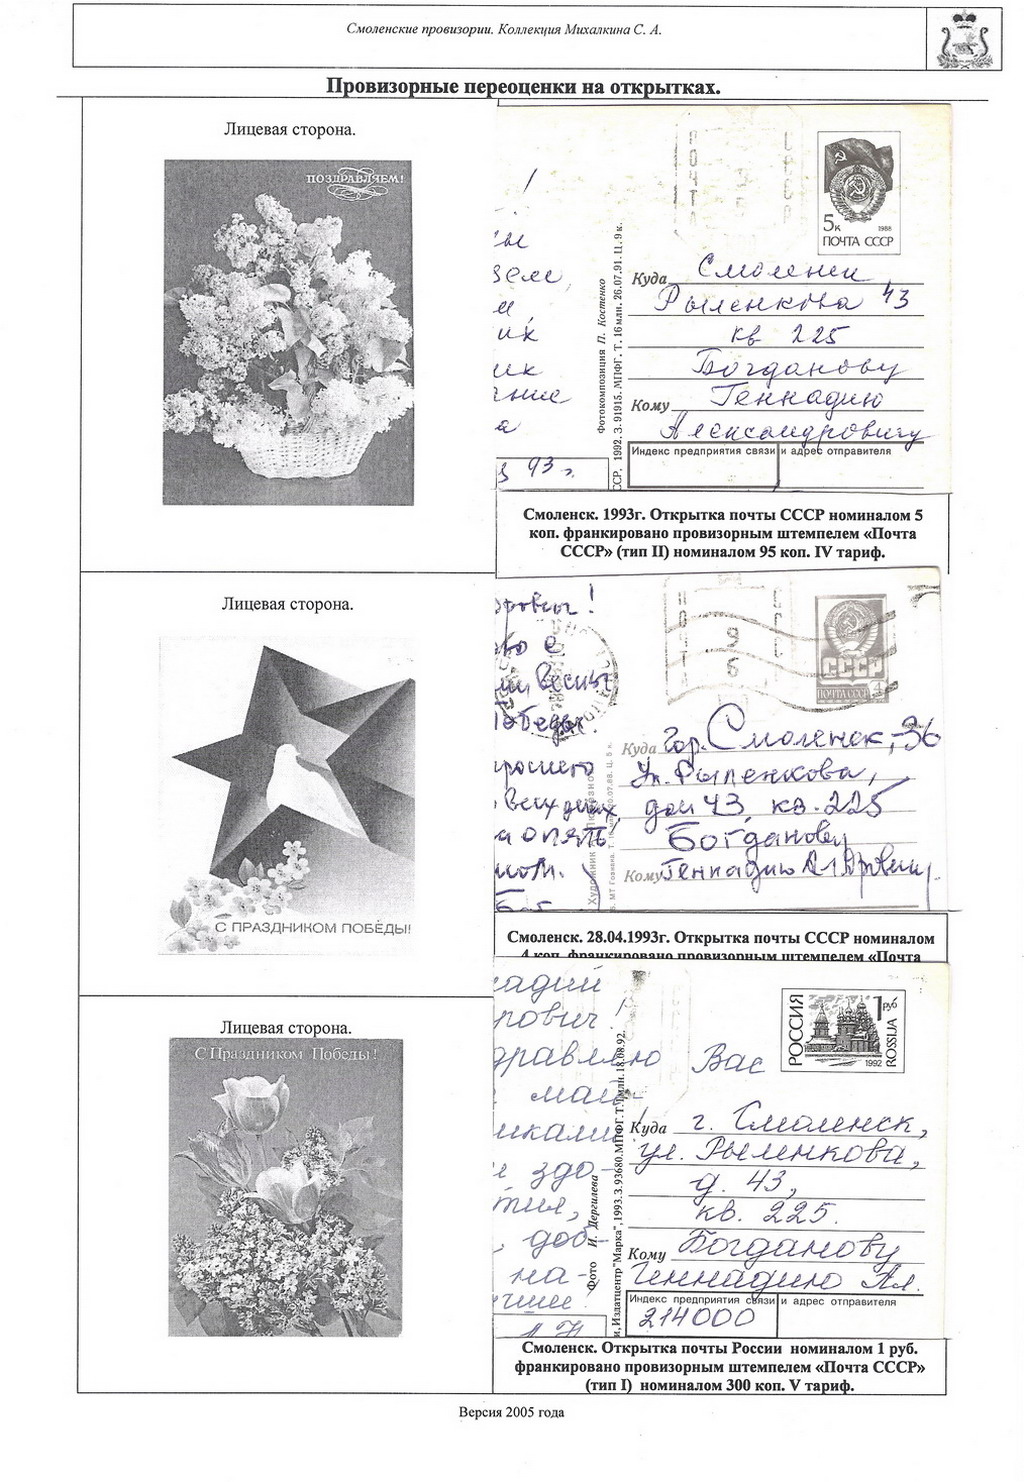 Смоленские провизории. Коллекция Михалкина С. А.
Провизорные переоценки на открытках.
Лицевая сторона.
ПОЗДРАВЛЯЕМ!
5к 1988
ПОЧТА СССР
Куда Смоленск
Рыленкова 43
кв 225
Богданову
Кому Геннадию
Александровичу
Индекс предприятия связи и адрес отправителя
Фотокомпозиция П. Костенко
СССР. 1992. З. 91915. МПФГ. Т. 16 млн. 26.07.91. Ц. 9 к.
93 г.
Смоленск. 1993г. Открытка почты СССР номиналом 5
коп. франкировано провизорным штемпелем «Почта
СССР» (тип II) номиналом 95 коп. IV тариф.
Лицевая сторона.
С ПРАЗДНИКОМ ПОБЕДЫ!
СССР
ПОЧТА СССР 4
Весны
Победы.
Куда Гор. Смоленск,-36
Ул. Рыленкова,
дом 43, кв. 225
Богданову
Кому Геннадию
опять
Смоленск. 28.04.1993г. Открытка почты СССР номиналом
4 коп. франкировано провизорным штемпелем «Почта
Лицевая сторона.
С Праздником Победы!
РОССИЯ 1 руб ROSSIJA
1992
Вас
Куда г. Смоленск,
ул. Рыленкова,
д. 43,
кв. 225.
Кому Богданову
Геннадию Ал.
Индекс предприятия связи и адрес отправителя
214000
Фото И. Дергилева
и, Издатцентр "Марка", 1993. З. 93680. МПФГ. Т. 1 млн. 18.08.92.
Смоленск. Открытка почты России номиналом 1 руб.
франкировано провизорным штемпелем «Почта СССР»
(тип I) номиналом 300 коп. V тариф.
Версия 2005 года